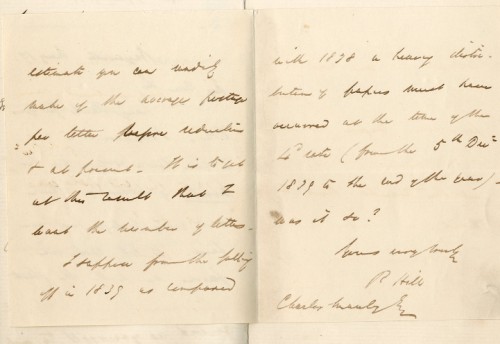 estimate you can readily
make of the average postage
per letter before reduction
& at present. It is to get
at this result that I
want the number of letters.
I suppose from the falling
off in 1839 as compared
with 1838 a heavy distri-
bution of papers must have
occurred at the time of the
4d rate (from the 5th Decr
1839 to the end of the year)
was it so?
Yours very truly
R Hill
Charles